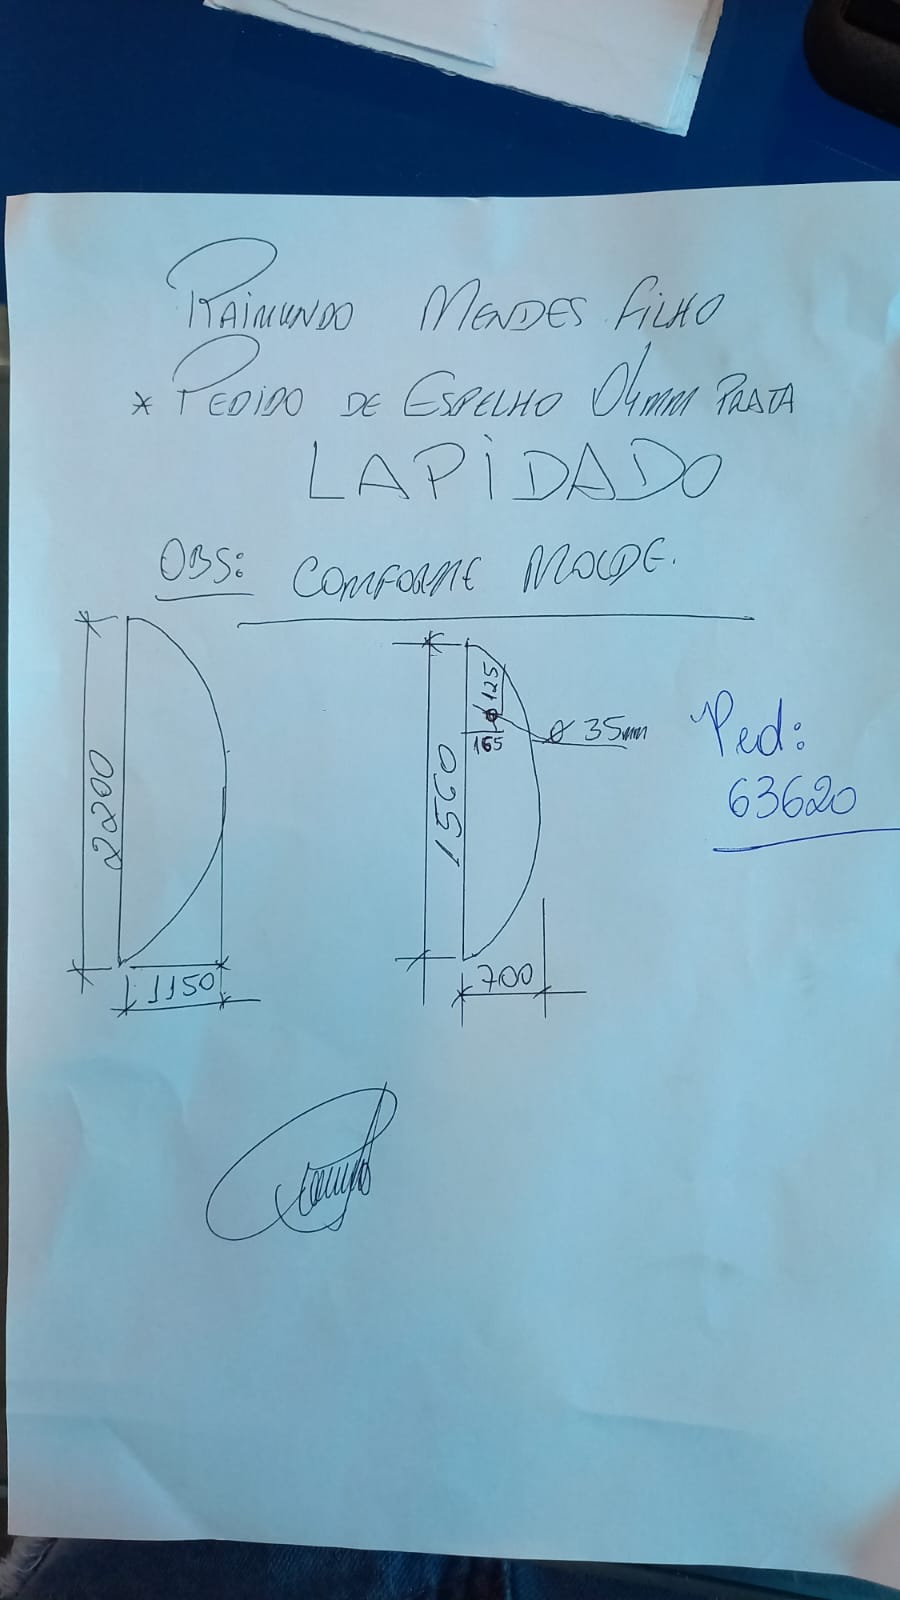 RAIMUNDO MENDES FILHO
* PEDIDO DE ESPELHO 04mm PRATA
LAPIDADO
OBS: COMFORME MOLDE.
2200
1150
125
165
Ø 35mm
1560
700
Ped:
63620